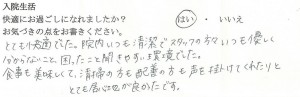 入院生活
快適にお過ごしになれましたか？ はい ・ いいえ
お気づきの点をお書きください。
とても快適でした。院内いつも清潔でスタッフの方々いつも優しく
分からないこと、困ったこと聞きやすい環境でした。
食事も美味しくて、清掃の方も配膳の方も声を掛けてくれたりと
とても居心地が良かったです。